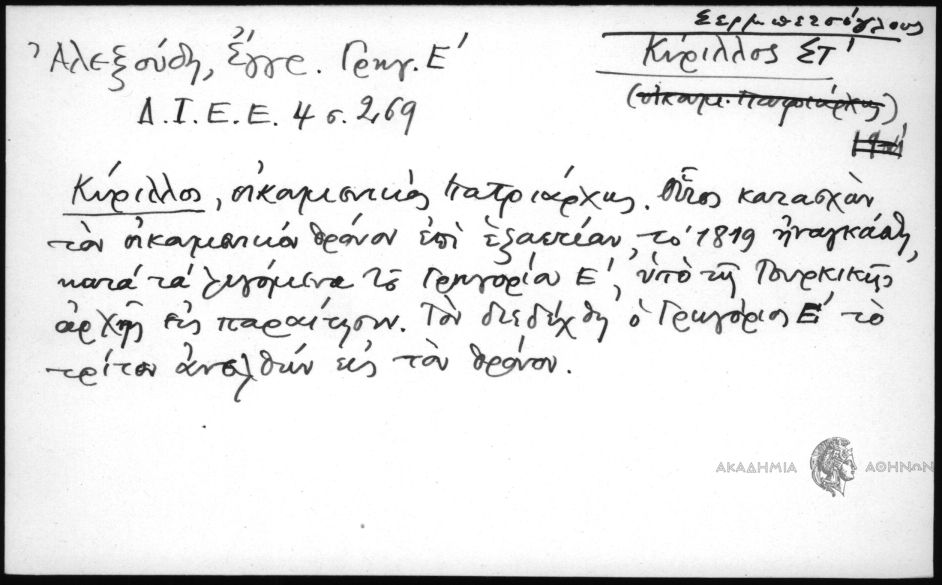 Σερμπετσόγλους
Ἀλεξούδη, Ἔγγρ. Γρηγ. Ε΄
Κύριλλος ΣΤ΄
Δ.Ι.Ε.Ε. 4 σ. 269
(οἰκουμ. Πατριάρχης)
Κύριλλος, οἰκουμενικός Πατριάρχης. Οὗτος κατασχὼν
τὸν οἰκουμενικόν θρόνον ἐπὶ ἑξαετίαν, τό 1819 ἠναγκάσθη,
κατά τά λεγόμενα τοῦ Γρηγορίου Ε΄, ὑπὸ τῆς Τουρκικῆς
ἀρχῆς εἰς παραίτησιν. Τὸν διεδέχθη ὁ Γρηγόριος Ε΄ τὸ
τρίτον ἀνελθών εἰς τὸν θρόνον.
ΑΚΑΔΗΜΙΑ ΑΘΗΝΩΝ